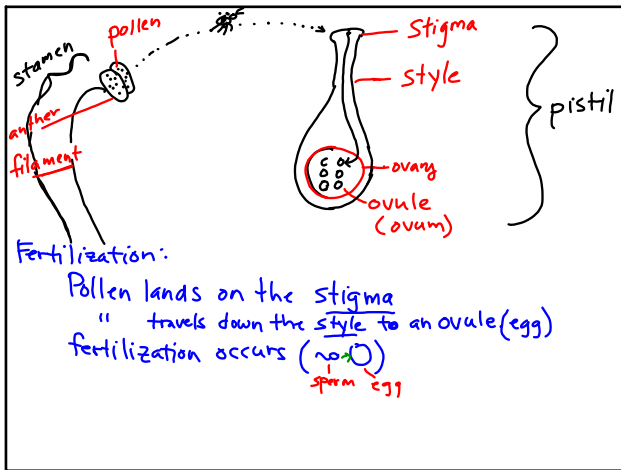 pollen
stamen
anther
filament
stigma
style
pistil
ovary
ovule
(ovum)
Fertilization:
Pollen lands on the stigma
" travels down the style to an ovule (egg)
fertilization occurs ( )
sperm egg